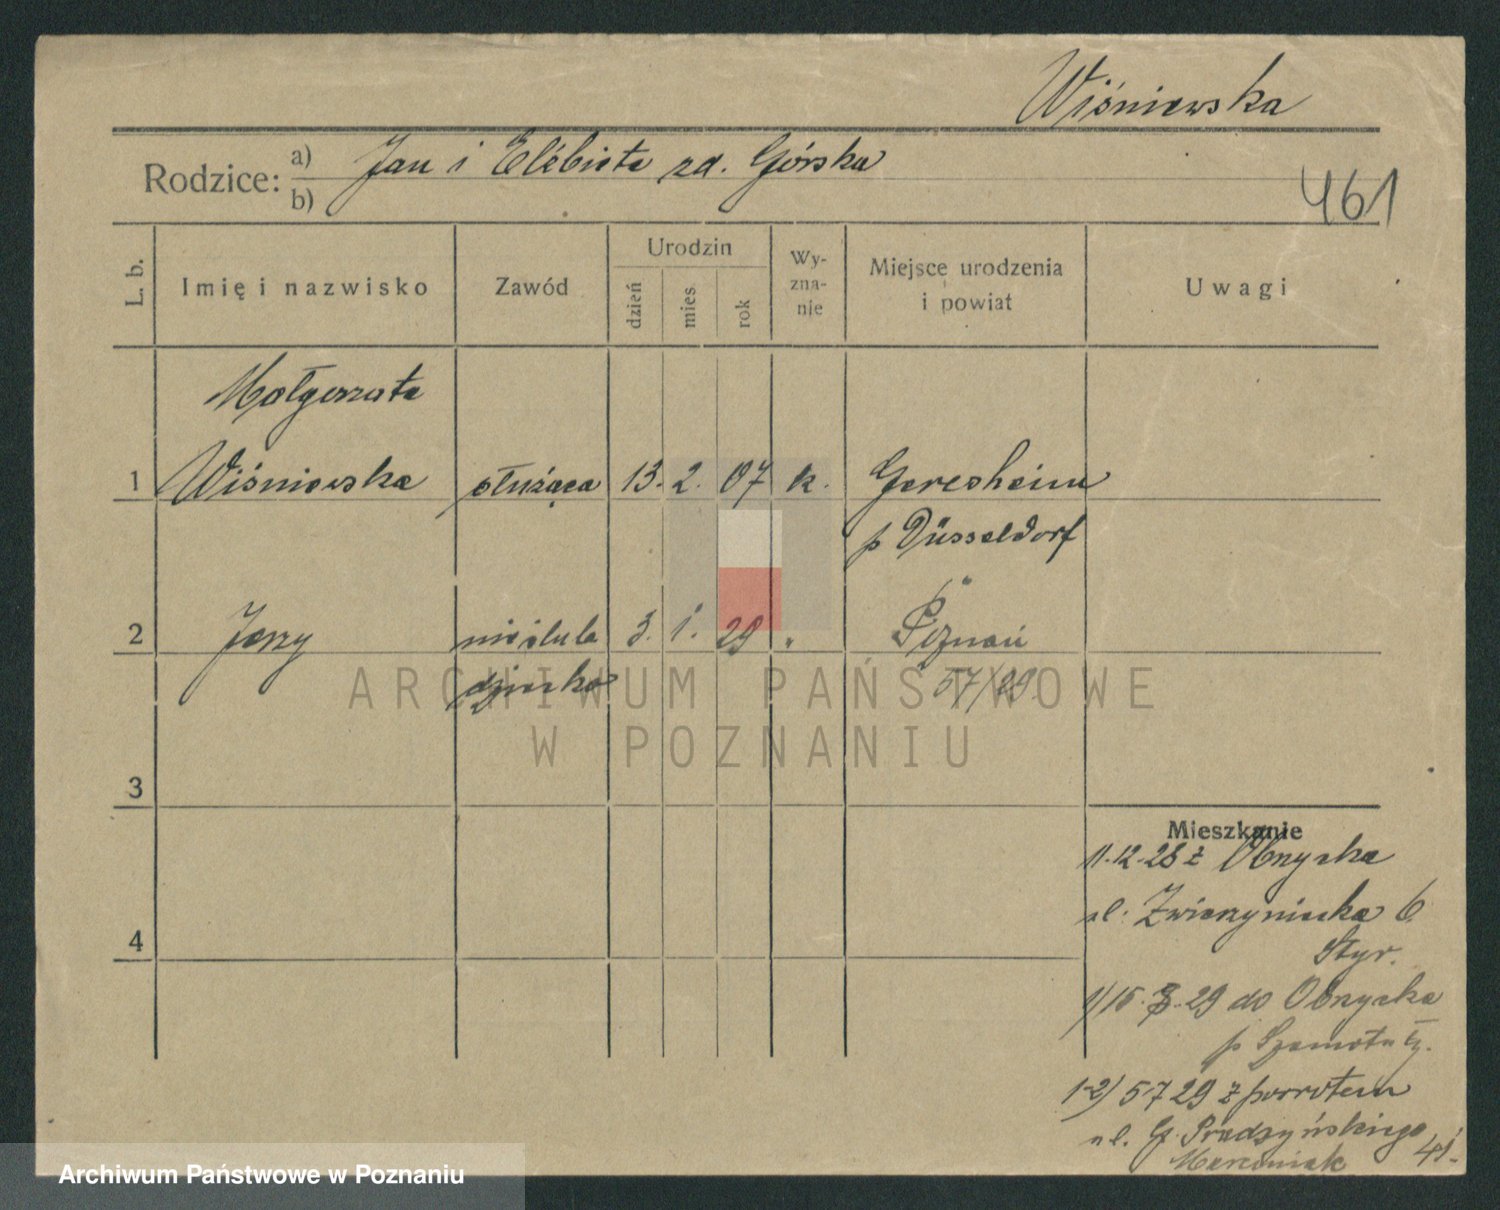 Wiśniewska
Rodzice: a) Jan i Elżbieta zd. Górska
b)
461
L. b. Imię i nazwisko Zawód Urodzin dzień mies. rok Wyznanie Miejsce urodzenia i powiat Uwagi
Małgorzata
1 Wiśniewska służąca 13. 2. 07 k. Geresheim
p Düsseldorf
2 Jerzy nieślub 3. 1. 29 " Poznań
dziecko 57/29
ARCHIWUM PAŃSTWOWE
W POZNANIU
3
Mieszkanie
11.12.28 z Obrzycka
ul. Zwierzyniecka 6
Styr.
4
1/15.3.29 do Obrzycka
p Szamotuły.
1-2/ 5 7 29 z powrotem
ul. G. Prądzyńskiego 41
Marciniak
Archiwum Państwowe w Poznaniu